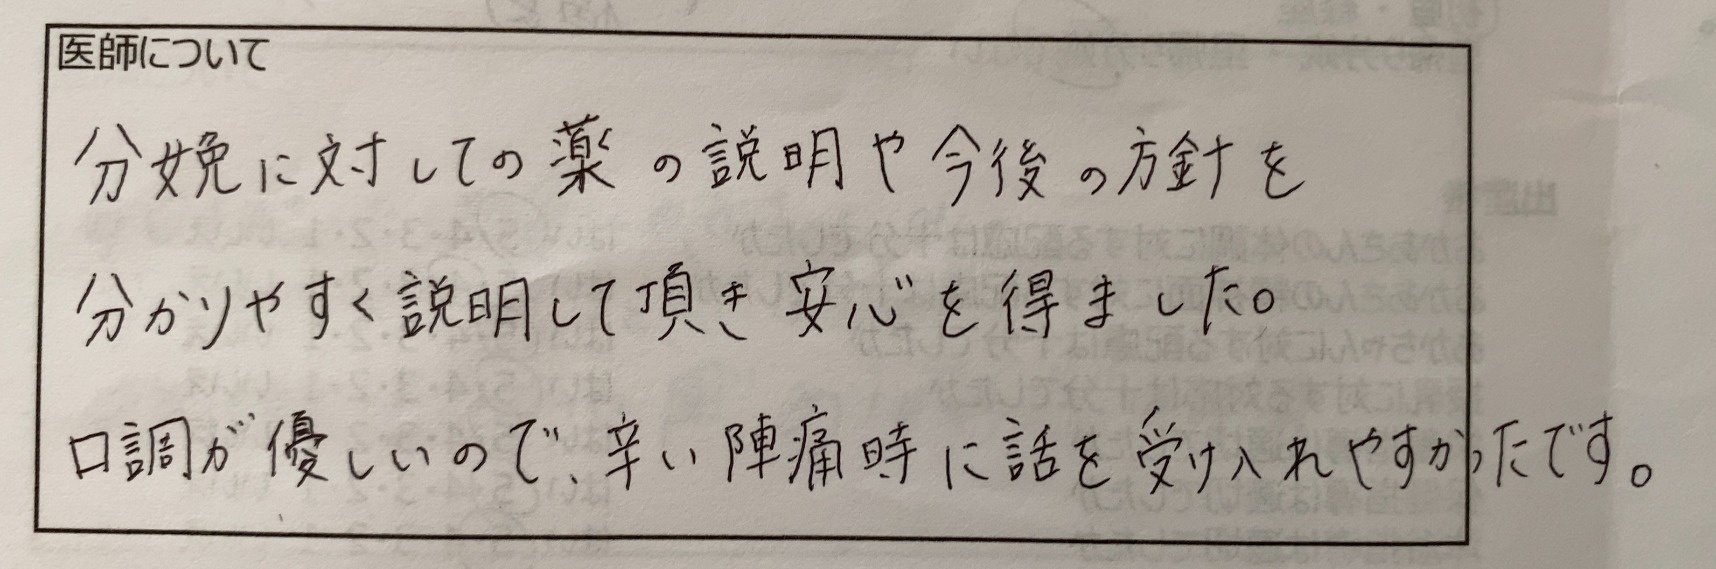 医師について
分娩に対しての薬の説明や今後の方針を
分かりやすく説明して頂き安心を得ました。
口調が優しいので、辛い陣痛時に話を受け入れやすかったです。